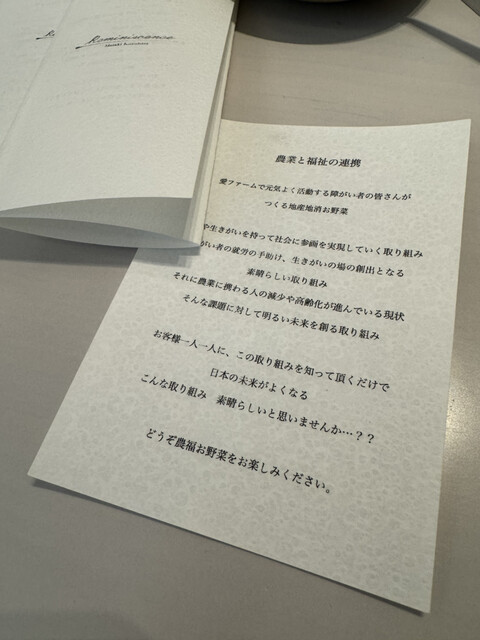 Reminiscence
農業と福祉の連携
愛ファームで元気よく活動する障がい者の皆さんが
つくる地産地消お野菜
や生きがいを持って社会に参画を実現していく取り組み
がい者の就労の手助け、生きがいの場の創出となる
素晴らしい取り組み
それに農業に携わる人の減少や高齢化が進んでいる現状
そんな課題に対して明るい未来を創る取り組み
お客様一人一人に、この取り組みを知って頂くだけで
日本の未来がよくなる
こんな取り組み 素晴らしいと思いませんか…？？
どうぞ農福お野菜をお楽しみください。